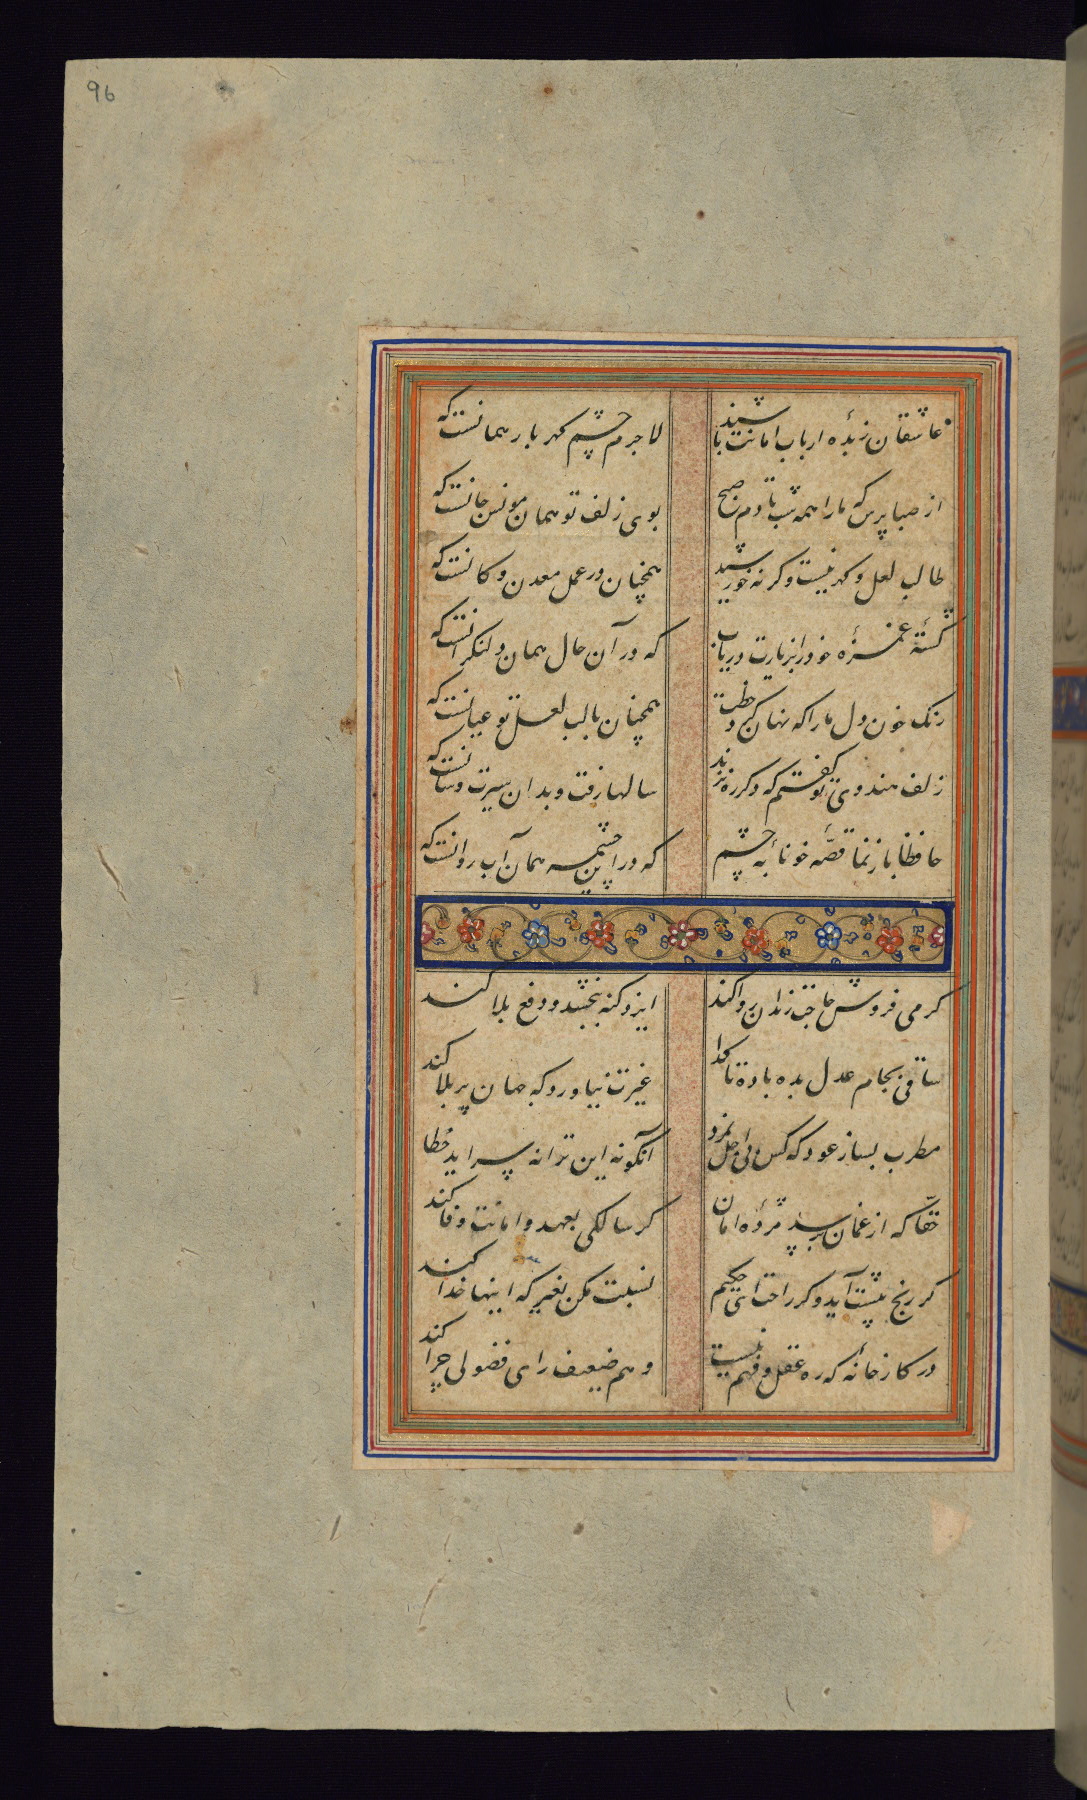 96
عاشقان زبدهٔ ارباب امانت باشند
لاجرم چشم کهر بار همانست که
از صبا پرس که ما را همه شب تا دم صبح
بوی زلف تو همان مونس جانست که
طالب لعل و کهر نیست وکرنه خورشید
همچنان در عمل معدن و کانست که
کشتهٔ غمزهٔ خود را بزیارت دریاب
که در آن حال همان دلنکرانست که
رنک خون دل ما را که نهان
همچنان بالب لعل تو عیانست که
زلف هندوی تو کفتم که دکر ره نزند
سالها رفت و بدان سیرت و سانست که
حافظا باز نما قصّه خونابهٔ چشم
که درین چشمه همان آب روانست که
کر می فروش حاجت رندان روا کند
ایزد کنه ببخشد و دفع بلا کند
ساقی بجام عدل بده باده تا کدا
غیرت نیاورد که جهان پر بلا کند
مطرب بساز عود که کس بی اجل نمرد
آنکو نه این ترانه سراید خطا کند
حقّا که از غمان برسد مژدهٔ امان
کر سالکی بعهد و امانت وفا کند
کر رنج پیشت آید و کر راحت ای حکیم
نسبت مکن بغیر که اینها خدا کند
در کارخانهٔ که ره عقل و فهم نیست
و هم ضعیف رای فضولی چرا کند